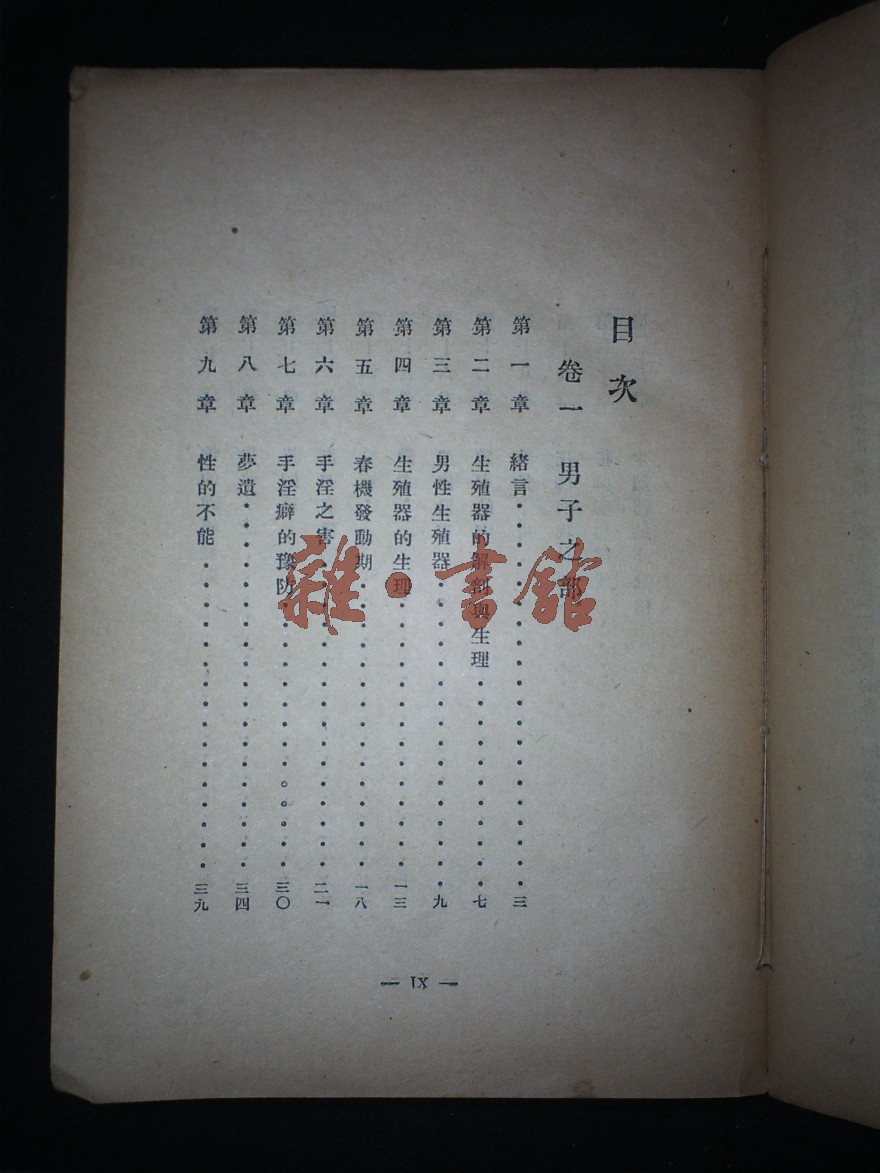 目次
卷一 男子之部
第一章 緒言····················三
第二章 生殖器的解剖與生理···········七
第三章 男性生殖器·················九
第四章 生殖器的生理···············一三
第五章 春機發動期················一八
第六章 手淫之害·················二一
第七章 手淫癖的豫防···············三〇
第八章 夢遺···················三四
第九章 性的不能·················三九
— IX —
雜·書館